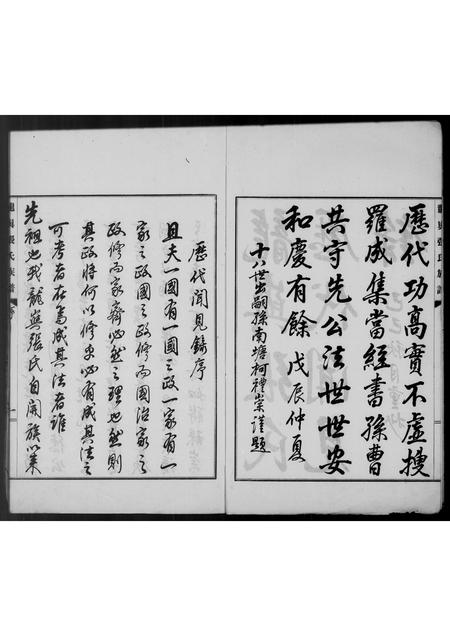 歷代功高實不虛搜
羅成集當經書孫曹
共守先公法世世安
和慶有餘 戊辰仲夏
十八世出嗣孫南塘柯禮崇謹題
歷代聞見錄序
且夫一國有一國之政一家有一
家之政國之政修而國治家之
政修而家齊必然之理也然則
其政將何以修史必有成其法之
可考者在焉成其法者誰
先祖也我龍興張氏自開族以來